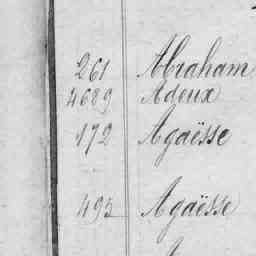 261 Abraham
4689 Adoux
172 Agaësse
495 Agaësse